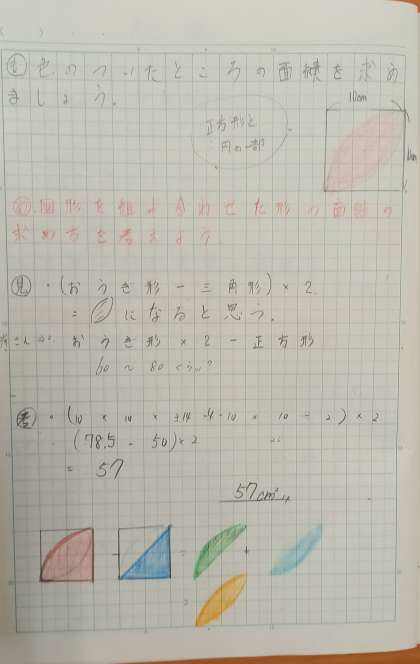 問 色のついたところの面積を求め
ましょう。
10cm
正方形と
円の一部
10cm
め 図形を組み合わせた形の面積の
求め方を考えよう
見 ・(おうぎ形 - 三角形) × 2
= になると思う。
おうぎ形 × 2 - 正方形
60 〜 80 くらい?
考 ・(10 × 10 × 3.14 ÷ 4 - 10 × 10 ÷ 2) × 2
(78.5 - 50) × 2
= 57
57cm²